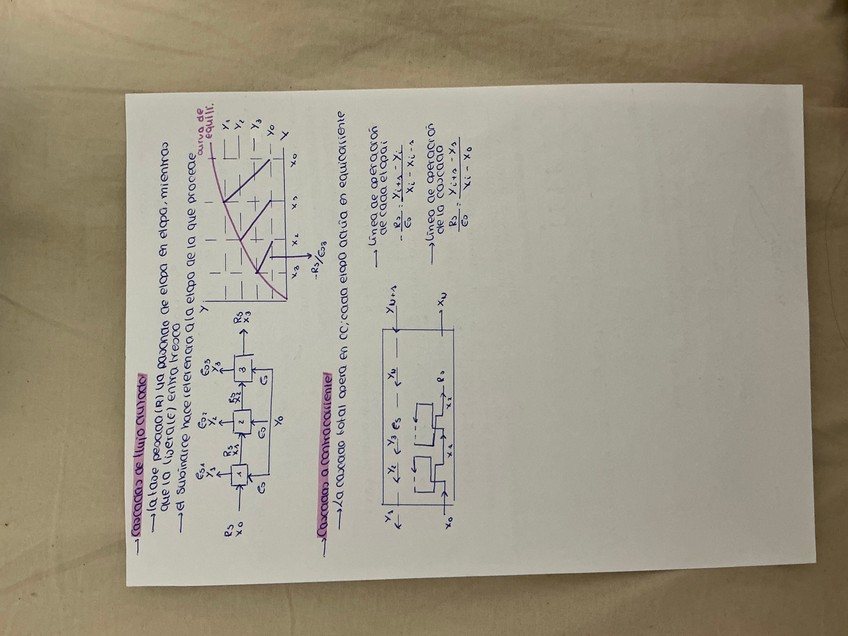 → Cascadas de flujo cruzado
→ la fase pesada (R) va pasando de etapa en etapa, mientras
que la ligera (E) entra fresca
→ el subíndice hace referencia a la etapa de la que procede
Rs
X0
1
Es1
Y1
Rs
X1
2
Es2
Y2
Rs
X2
3
Es3
Y3
Rs
X3
Es
Es
Es
Y0
Y
curva de
equilí.
Y1
Y2
Y3
Y0
X
X3
X2
X1
X0
-Rs/Es3
→ Cascadas a contracorriente
→ La cascada total opera en CC; cada etapa actúa en equicorriente
Y1
Y2
Y3
Es
YN
YN+1
X0
X1
X2
Rs
XN
→ Línea de operación
de cada etapa i
- Rs/Es = Yi+1 - Yi / Xi - Xi-1
→ Línea de operación
de la cascada
Rs/Es = Yi+1 - Y1 / Xi - X0